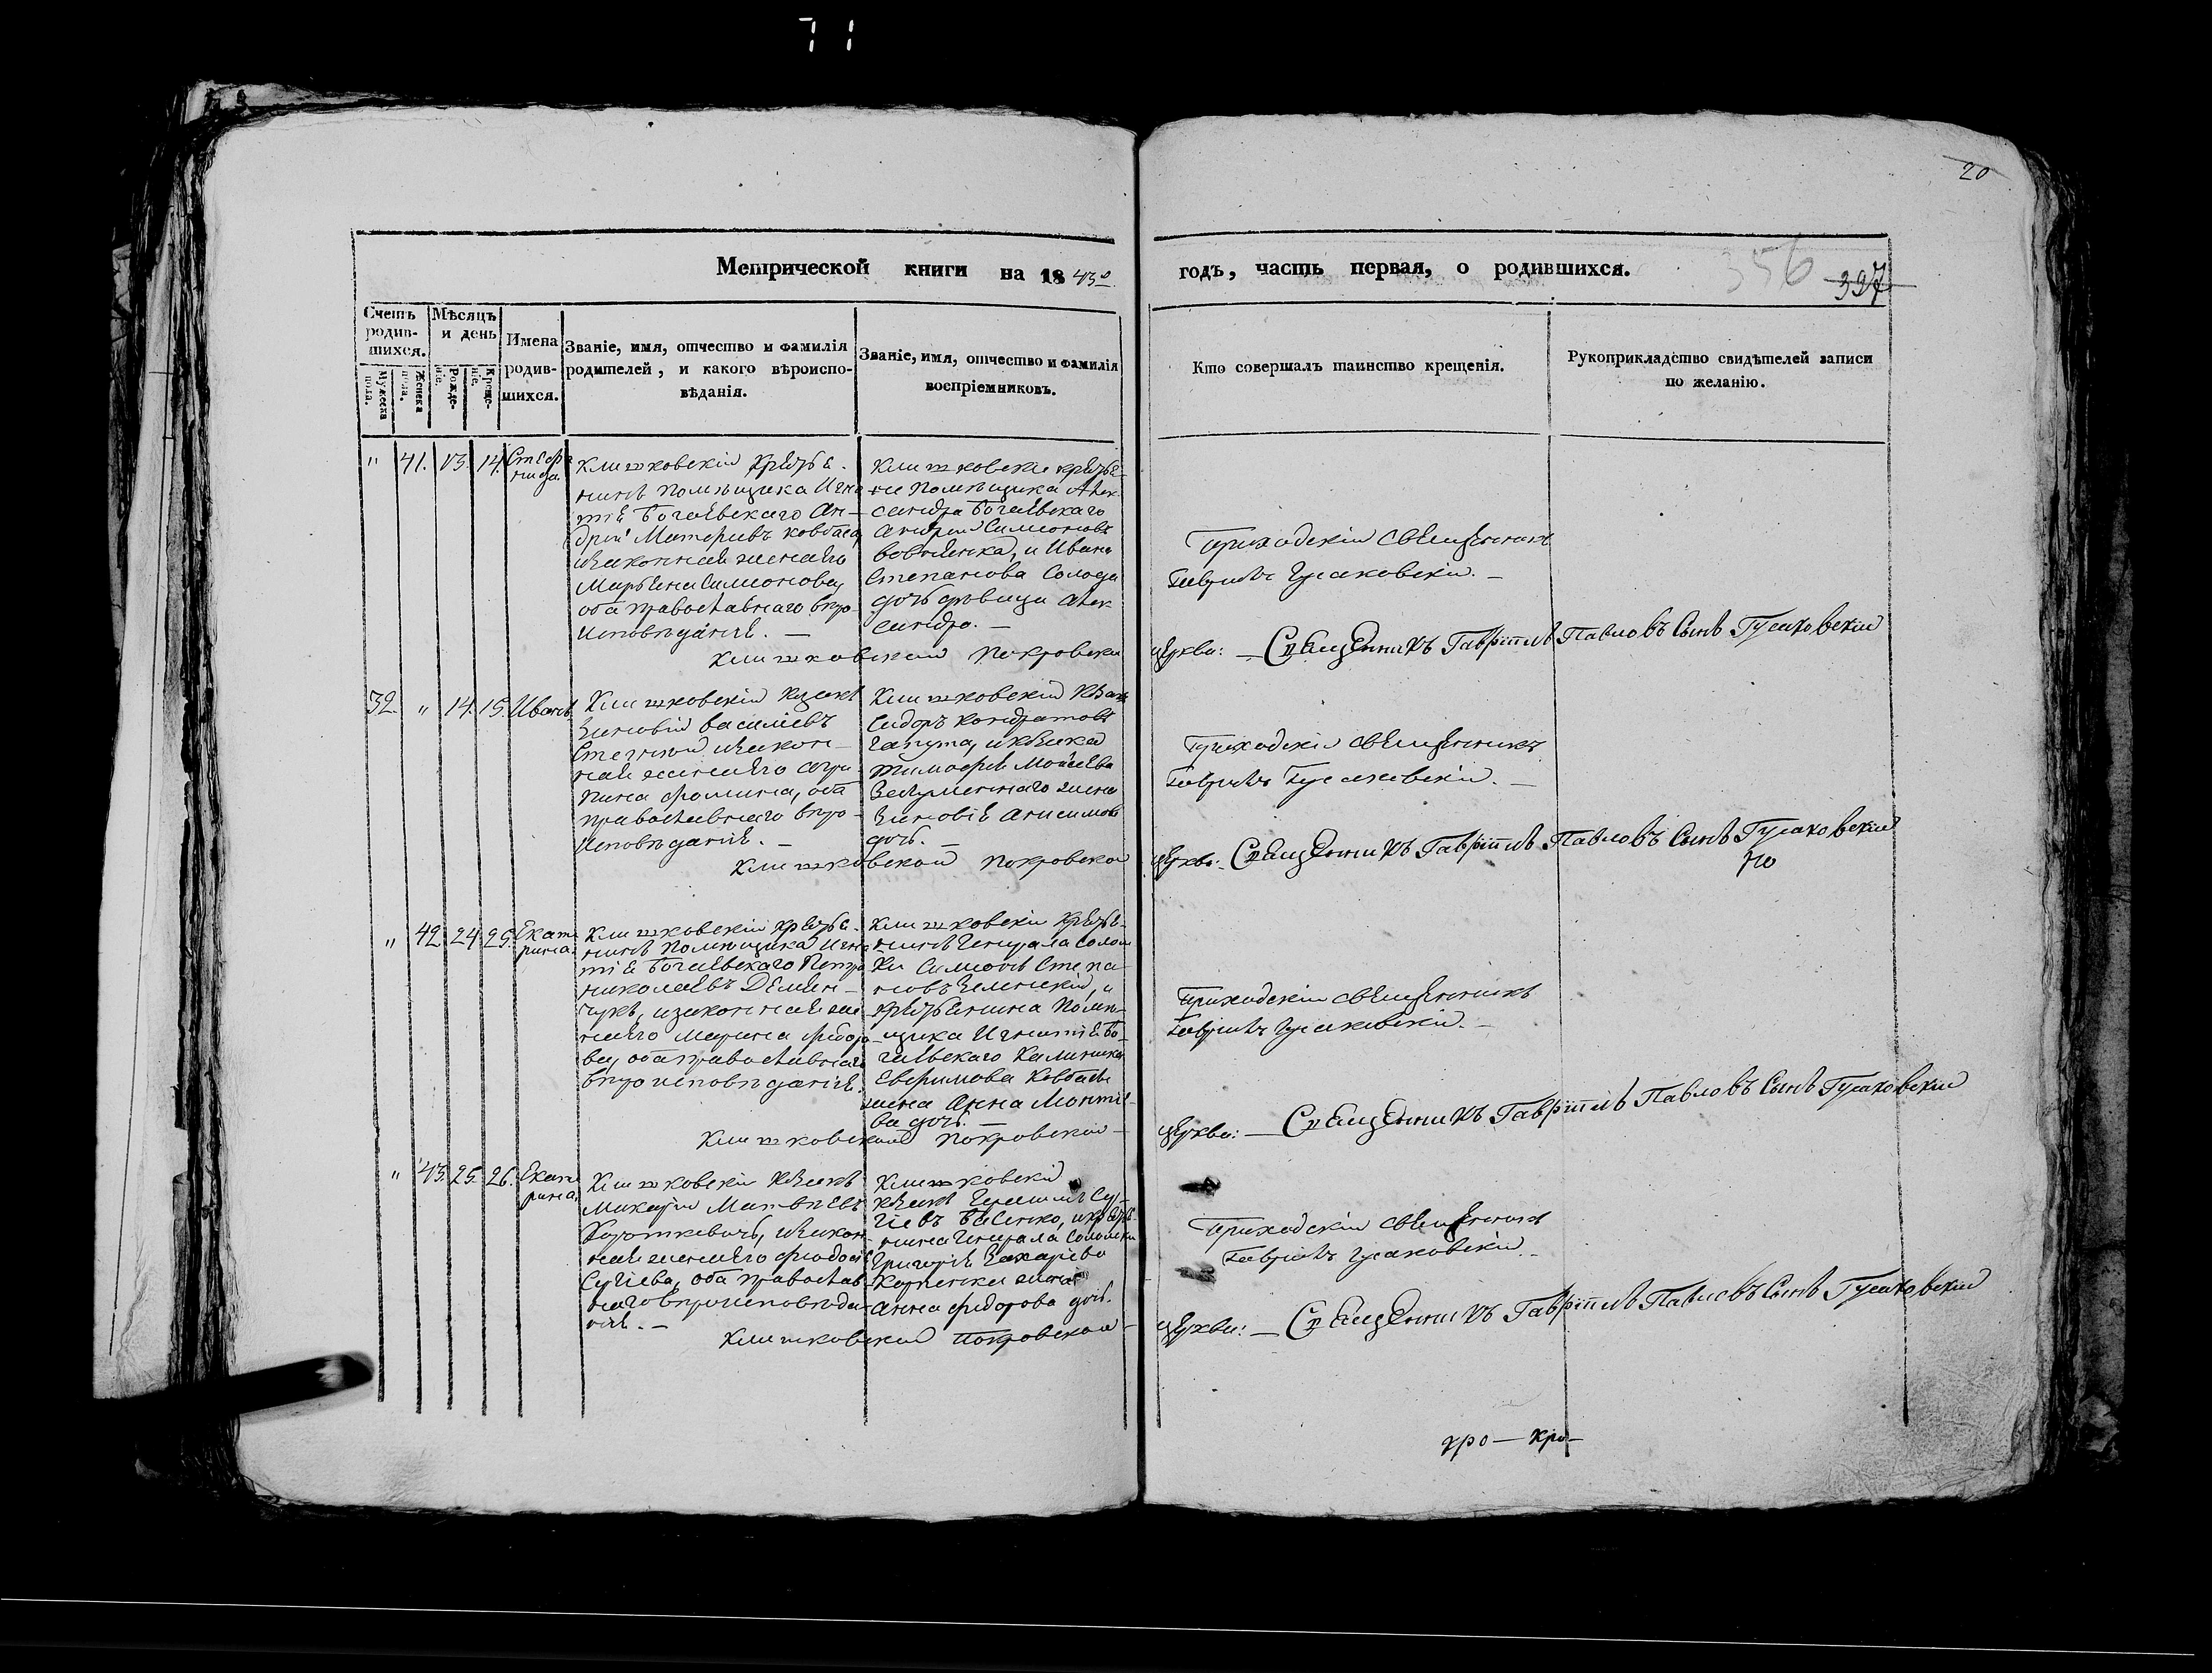 20
Метрической книги на 1843го годъ, часть первая, о родившихся.
356 397
Счетъ родившихся.
Мужеска пола.
Женска пола.
Мѣсяцъ и день
Рожденіе.
Крещеніе.
Имена родившихся.
Званіе, имя, отчество и фамилія
родителей, и какого вѣроиспо-
вѣданія.
Званіе, имя, отчество и фамилія
воспріемниковъ.
Кто совершалъ таинство крещенія.
Рукоприкладство свидѣтелей записи
по желанію.
" 41. 13. 14.
Клишковскій крестья-
нинъ Помѣщика Игна
тія Богаевскаго Ан-
дрей
изаконная жена его
Марья Симіонова,
оба православнаго вѣро
исповѣданія. —
Клишковскіе крестья-
не Помѣщика Алек
сандра Богаевскаго
Андрей Симіоновъ
и Ивана
Степанова Солода
дочь дѣвица Алек
сандра. —
Приходскій священникъ
Гавріилъ Гусаковскій. —
Клишковской Покровской церкви: — Священникъ Гавріилъ Павловъ Сынъ Гусаковскій
32. " 14. 15. Иванъ.
Клишковскій козакъ
Зиновій Василіевъ
изакон-
ная жена его Агри-
пина Фомина, оба
православнаго вѣро-
исповѣданія. —
Клишковскій козакъ
Сидоръ Кондратовъ
Гапута, и козака
Тимофея Мойсеева
жена
Зиновія Анисимова
дочь. —
Приходскій священникъ
Гавріилъ Гусаковскій. —
Клишковской Покровской церкви: Священникъ Гавріилъ Павловъ Сынъ Гусаковскій
" 42. 24. 25. Екате
рина.
Клишковскій крестья-
нинъ Помѣщика Игна
тія Богаевскаго Петръ
Николаевъ Демен-
чукъ, изаконная же
на его Марина Федоро
ва, оба православнаго
вѣроисповѣданія.
Клишковскій крестья-
нинъ Генерала Солом
ки Симіонъ Степа-
новъ Зеленскій, и
крестьянина Помѣ-
щика Игнатія Бо-
гаевскаго Калиника
Евфимова
жена Анна
ва дочь. —
Приходскій священникъ
Гавріилъ Гусаковскій. —
Клишковской Покровской церкви: — Священникъ Гавріилъ Павловъ Сынъ Гусаковскій
" 43. 25. 26. Екате
рина.
Клишковскій козакъ
Матвѣевъ
Короткевичъ, изакон
ная жена его Феодосія
Сергіева, оба православ
наго вѣроисповѣда
нія. —
Клишковскій
козакъ Герасимъ Сер-
гіевъ Басенко, и крестья
нина Генерала Соломки
Григорія Захаріева
Корпенки жена
Анна Федорова дочь.
Приходскій священникъ
Гавріилъ Гусаковскій. —
Клишковской Покровской церкви: — Священникъ Гавріилъ Павловъ Сынъ Гусаковскій